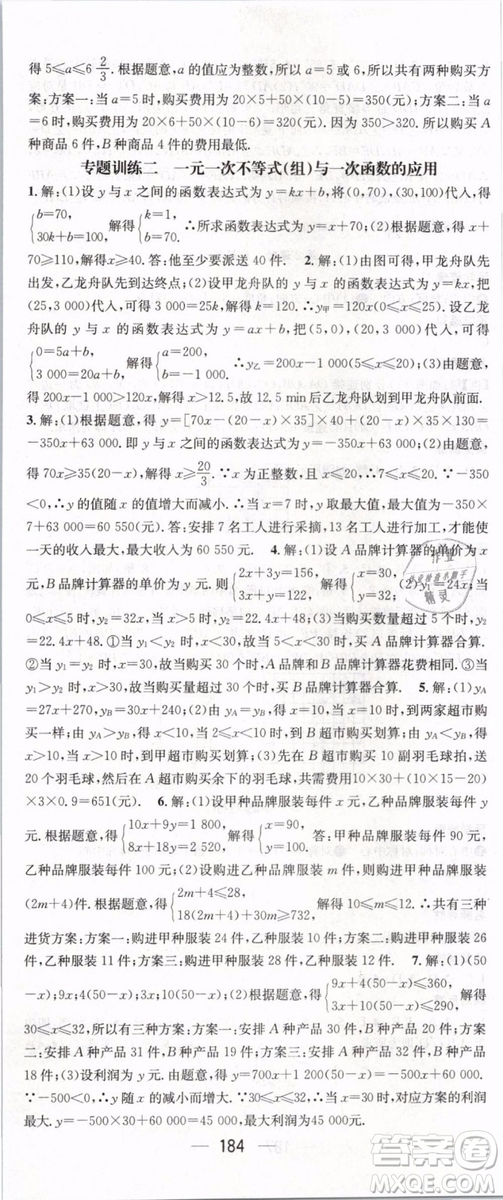 得 5≤a≤6 2/3. 根据题意，a 的值应为整数，所以 a=5 或 6，所以共有两种购买方
案：方案一：当 a=5 时，购买费用为 20×5+50×(10-5)=350(元)；方案二：当 a
=6 时，购买费用为 20×6+50×(10-6)=320(元). 因为 350>320. 所以购买 A
种商品 6 件，B 种商品 4 件的费用最低.
专题训练二 一元一次不等式(组)与一次函数的应用
1. 解：(1)设 y 与 x 之间的函数表达式为 y=kx+b，将(0，70)，(30，100)代入，得
{b=70, 30k+b=100, 解得 {k=1, b=70. ∴所求函数表达式为 y=x+70；(2)根据题意，得 x+
70≥110，解得 x≥40. 答：他至少要派送 40 件. 2. 解：(1)由图可得，甲龙舟队先
出发，乙龙舟队先到达终点；(2)设甲龙舟队的 y 与 x 函数表达式为 y=kx，把
(25，3 000)代入，可得 3 000=25k，解得 k=120. ∴y甲=120x(0≤x≤25). 设乙龙
舟队的 y 与 x 的函数表达式为 y=ax+b，把(5，0)，(20，3 000)代入，可得
{0=5a+b, 3 000=20a+b, 解得 {a=200, b=-1 000. ∴y乙=200x-1 000(5≤x≤20)；(3)由题意，
得 200x-1 000>120x，解得 x>12.5，故 12.5 min后乙龙舟队划行到甲龙舟队前面.
3. 解：(1)根据题意，得 y=[70x-(20-x)×35]×40+(20-x)×35×130=
-350x+63 000. 即 y 与 x 之间的函数表达式为 y=-350x+63 000；(2)根据题意，
得 70x≥35(20-x)，解得 x≥20/3. ∵x 为正整数，且 x≤20，∴7≤x≤20. ∵-350
<0，∴y 的值随 x 的值增大而减小. ∴当 x=7 时，y 取最大值，最大值为-350×
7+63 000=60 550(元). 答：安排 7 名工人进行采摘，13 名工人进行加工，才能使
一天的收入最大，最大收入为 60 550 元. 4. 解：(1)设 A 品牌计算器的单价为 x
元，B 品牌计算器的单价为 y 元，则 {2x+3y=156, 3x+y=122, 解得 {(2)y₁=24x；当
0≤x≤5 时，y₂=32x，当 x>5 时，y₂=32×5+32(x-5)×0.7，
=22.4x+48. ①当 y₁<y₂ 时，x<30，故当购买数量不足 30 个时，购买 A 品牌计算器合算.
②当 y₁=y₂ 时，x=30，故当购买 30 个时，购买 A 品牌和 B 品牌计算器花费相同. ③当
y₁>y₂ 时，x>30，故当购买数量超过 30 个时，购买 B 品牌计算器合算. 5. 解：(1)yA=
27x+270；yB=30x+240；(2)当 yA=yB 时，得 x=10，购买 10 个时，到两家超市购买
一样划算；当 yA>yB 时，x<10，∴当 2≤x<10 时，到 B 超市购买划算；当 yA<yB 时，x>
10，到 A 超市购买划算；(3)由题意知先选择 B 超市购买 10 副羽毛球拍，送
20 个羽毛球，然后在 A 超市购买余下的羽毛球，共需要费用10×30+(10×15-20)
×3×0.9=651(元). 6. 解：(1)设甲种品牌服装每件 x 元，乙种品牌服装每件 y
元，根据题意，得 {10x+9y=1 800, 8x+18y=2 520, 解得 {x=90, y=100. 答：甲种品牌服装每件 90 元，
乙种品牌服装每件 100 元；(2)设购进乙种品牌服装 m 件，则购进甲种品牌服装
(2m+4)件. 根据题意，得 {2m+4≤28, 18(2m+4)+30m≥732, 解得 10≤m≤12. ∴共有三种
进货方案：方案一：购进甲种服装 24 件，乙种服装 10 件；方案二：购进甲种服装 26
件，乙种服装 11 件；方案三：购进甲种服装 28 件，乙种服装 12 件. 7. 解：(1)(50
-x)；9x；4(50-x)；3x；10(50-x)；(2)根据题意，得 {9x+4(50-x)≤360, 3x+10(50-x)≤290, 解得
30≤x≤32，所以有三种方案：方案一：安排 A 种产品 30 件，B 种产品 20 件；方案
二：安排 A 种产品 31 件，B 种产品 19 件；方案三：安排 A 种产品 32 件，B 种产品
18 件；(3)设利润为 y 元，根据题意，得 y=700x+1 200(50-x)=-500x
+60 000. ∵-500<0，∴y 的值随 x 的增大而减小，∴x 取 30 时对应方案的利润
最大. y=-500×30+60 000=45 000，最大利润为45 000元.
184